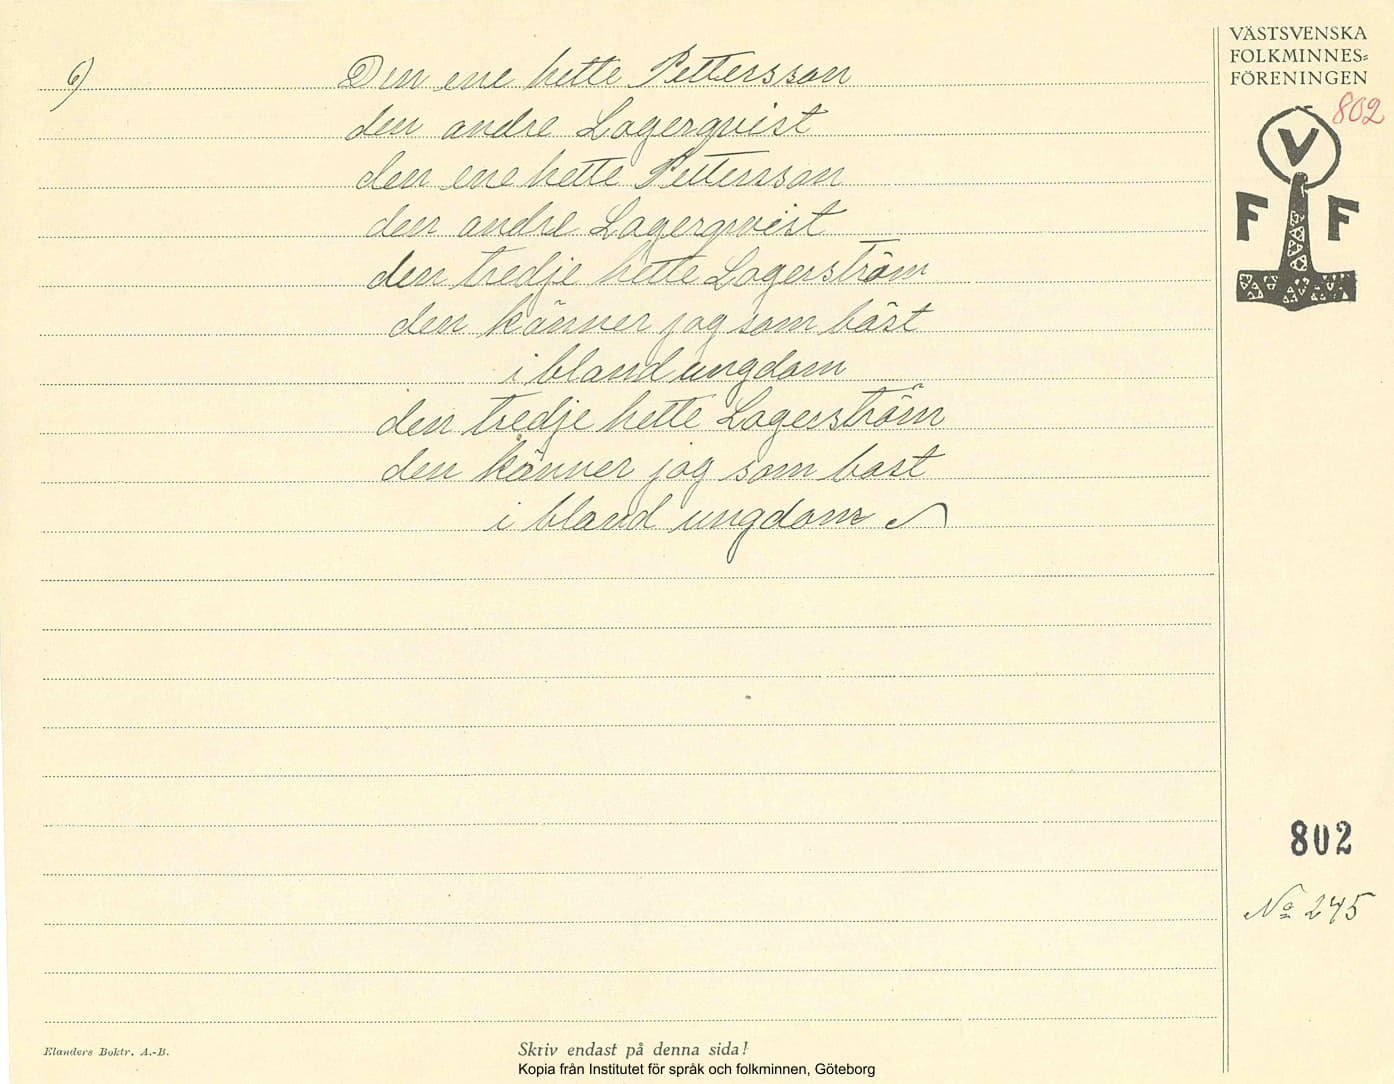 VÄSTSVENSKA
FOLKMINNES=
FÖRENINGEN
802
V
F F
6)
Den ene hette Pettersson
den andre Lagerqvist
den ene hette Pettersson
den andre Lagerqvist
den tredje hette Lagerström
den känner jag som bäst
i bland ungdom
den tredje hette Lagerström
den känner jag som bast
i bland ungdom
802
No 245
Elanders Boktr. A.-B.
Skriv endast på denna sida!
Kopia från Institutet för språk och folkminnen, Göteborg